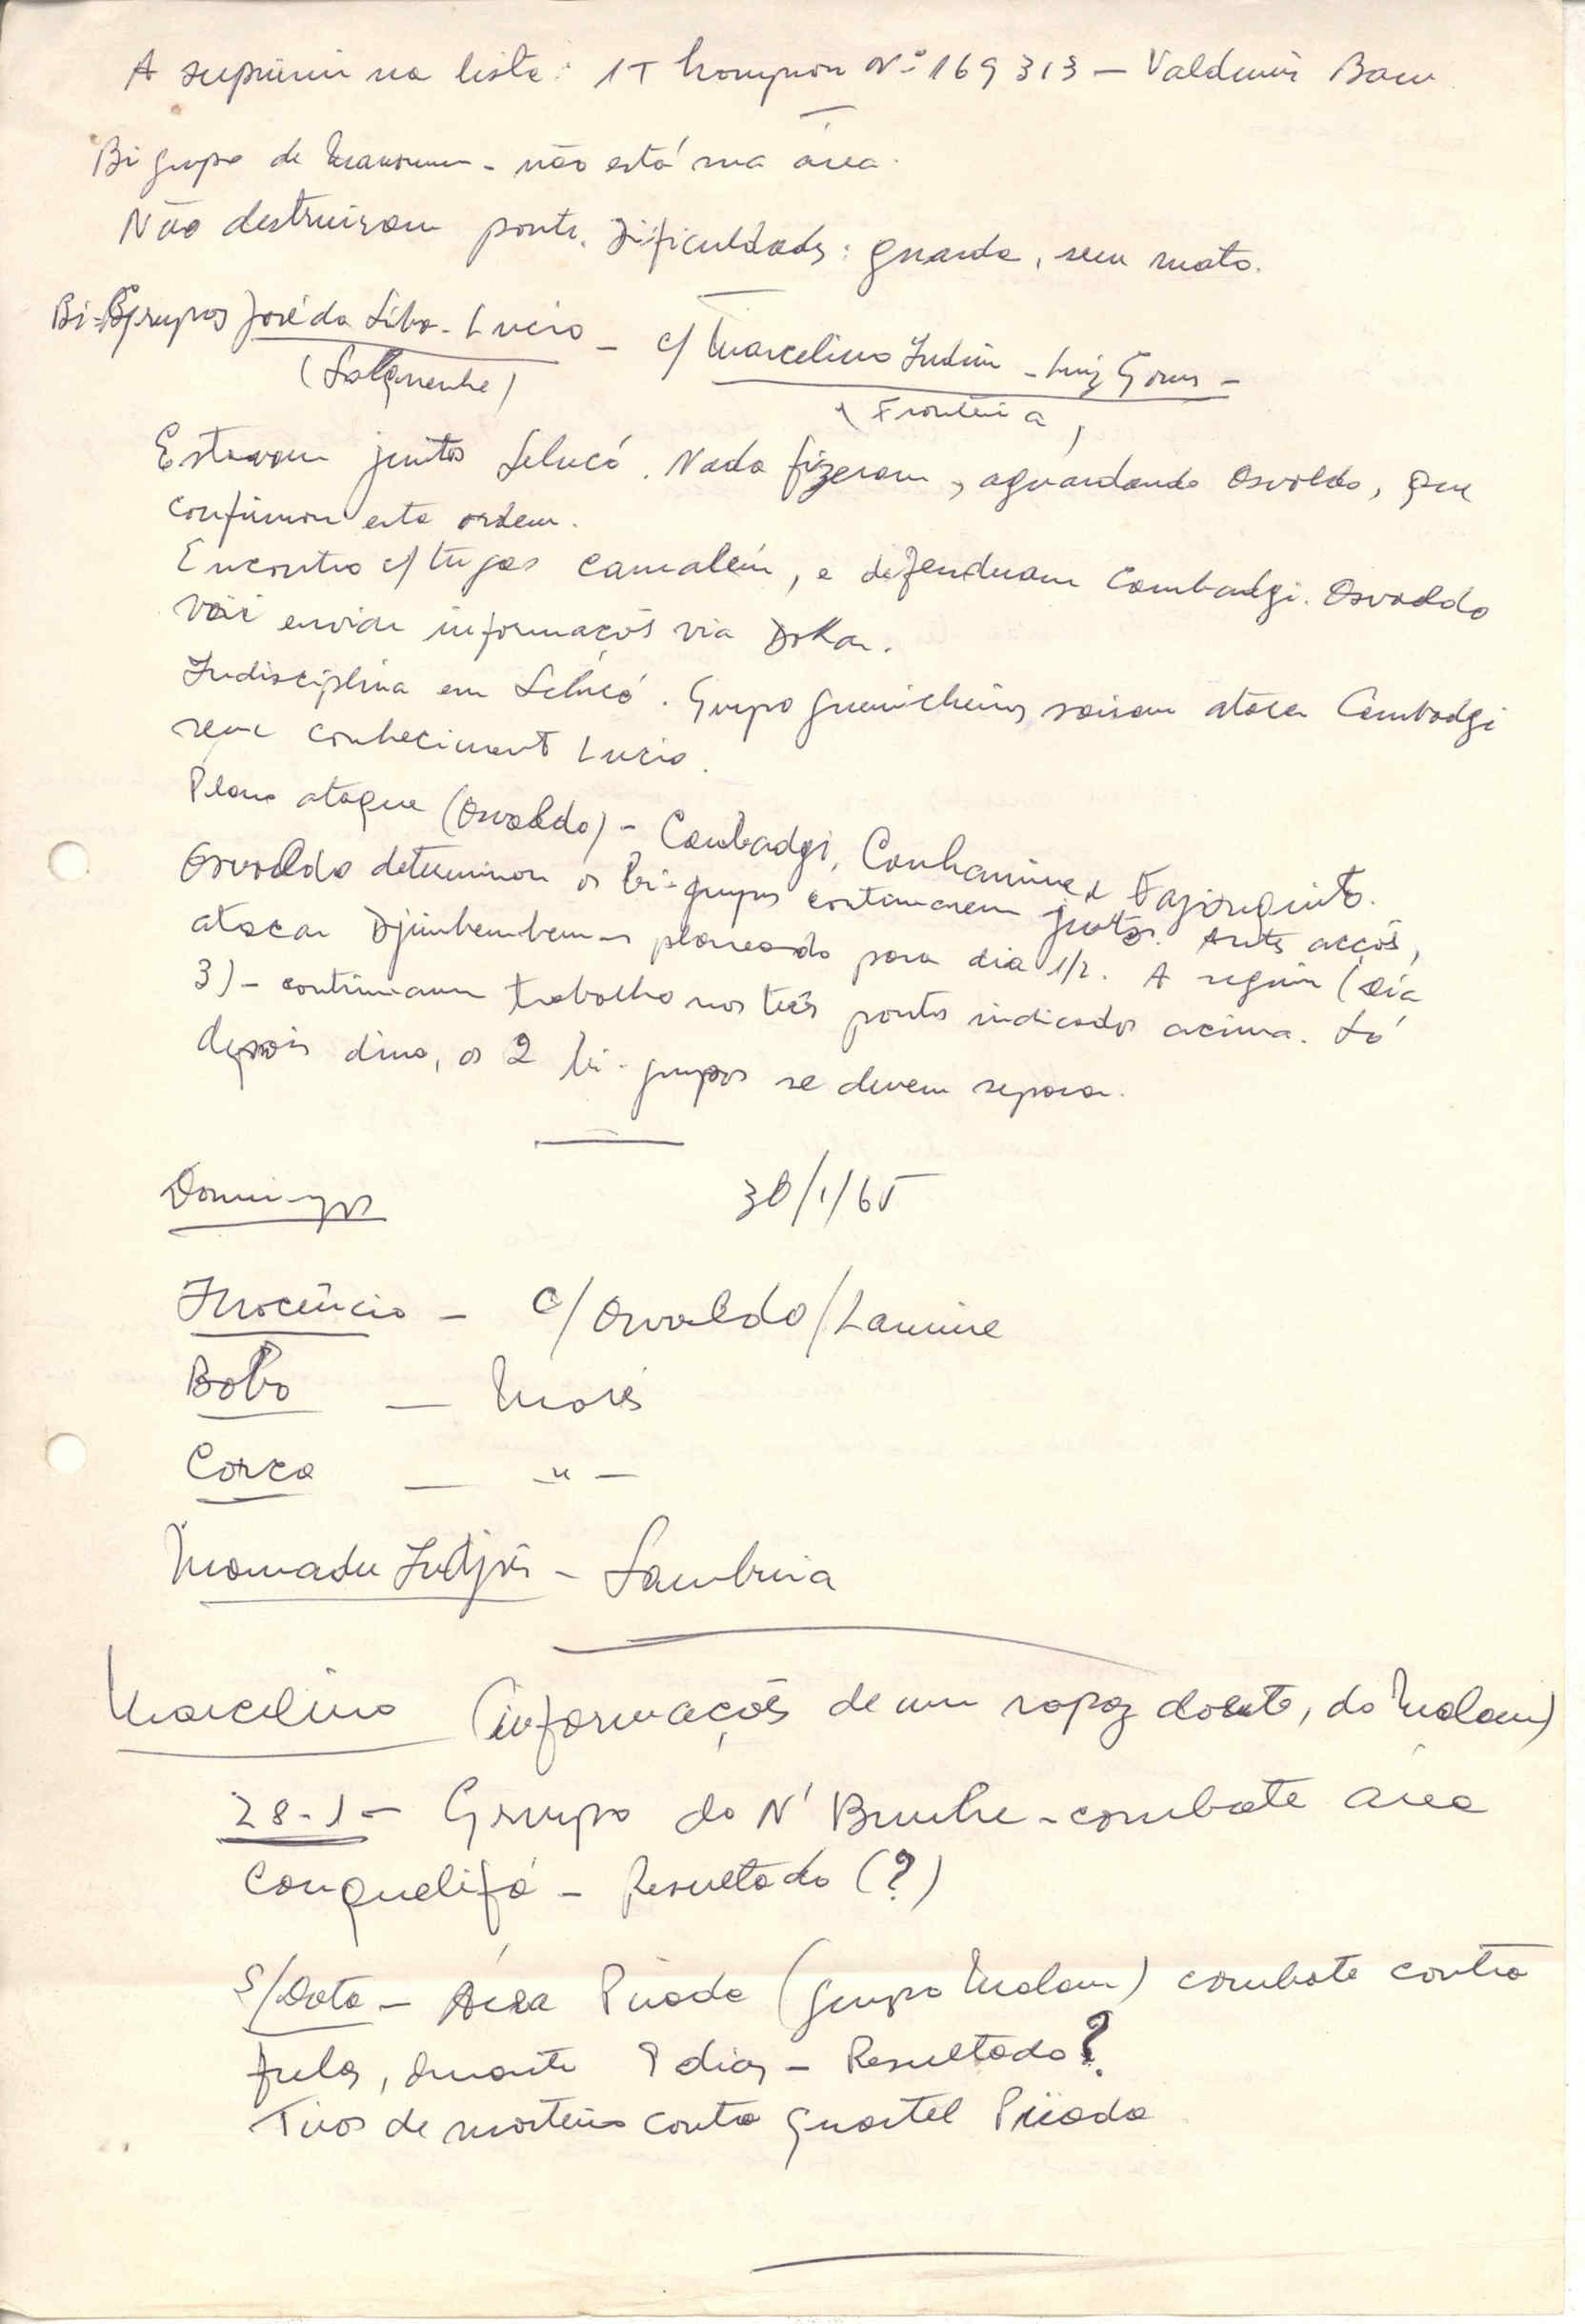 A suprimir na lista: 1 Thompson Nº 169313 — Valdemir
Bi grupo de — não está na área.
Não destruiram ponte. Dificuldades: guarda, sem mato.
Bi-grupos José da Silva - Lucio — c/ Marcelino Indim - Luiz Gomes —
(Fronteira)
Estavam juntos Selucó. Nada fizeram, aguardando Osvaldo, que
confirmou esta ordem.
Encontro c/ tugas, e defenderam Cambadgi. Osvaldo
vai enviar informações via
Indisciplina em Selucó. Grupo guerrilheiros sairam atacar Cambadgi
sem conheciment Lucio.
Plano ataque (Osvaldo) - Cambadgi, Canhamina e Fajonquito.
Osvaldo determinou os bi-grupos continuarem juntos. Antes acções,
atacar Djumbembem - planeado para dia 1/2. A seguir (dia
3) - continuam trabalho nos três pontos indicados acima. Só
depois disso, os 2 bi-grupos se devem separar.
Domingos 30/1/65
Inocêncio — c/ Osvaldo/Lamine
Bobo — Morés
Corca — " —
Mamadu Indjai - Sambuia
Marcelino (informações de um rapaz doente, do Malam)
28-1- Grupo do N'Bunhe - combate área
Canquelifá - Resultado (?)
s/Data - Área Pirada (grupo Malam) combate contra
fulas, durante dias - Resultado?
Tiros de morteiro contra quartel Pirada